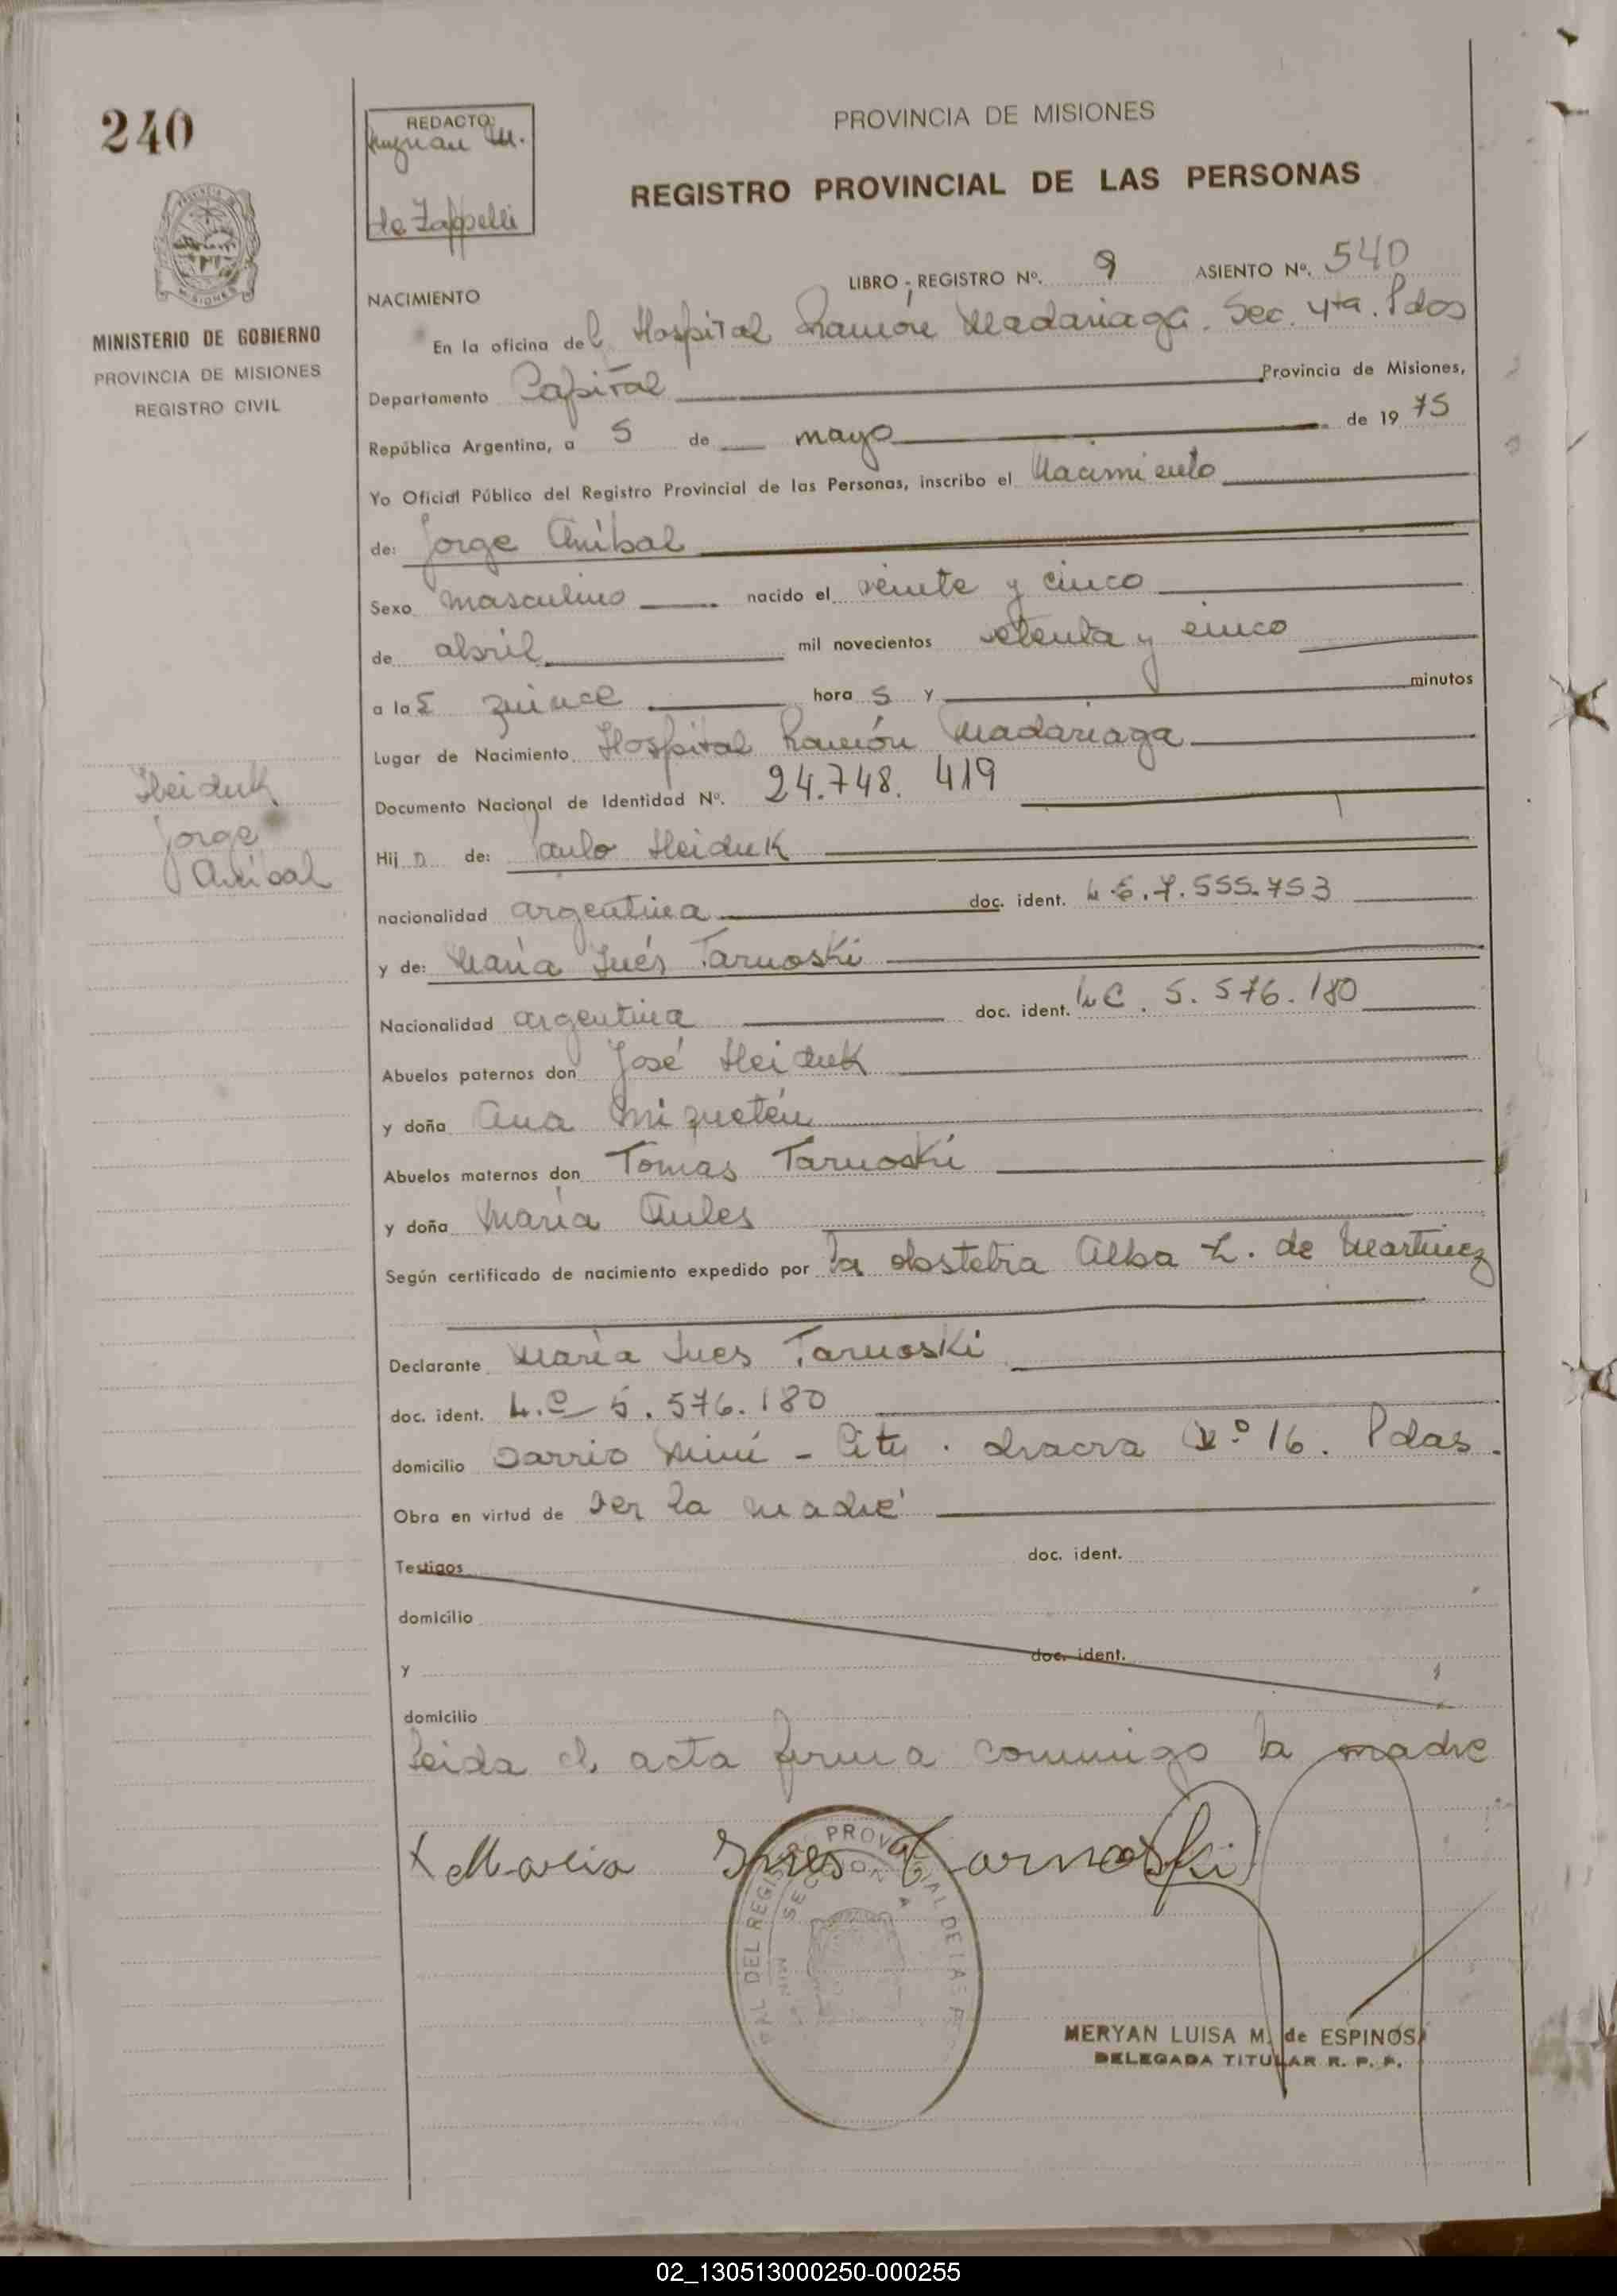 240
REDACTO:
M.
de Zappelli
PROVINCIA DE MISIONES
REGISTRO PROVINCIAL DE LAS PERSONAS
MISIONES
MINISTERIO DE GOBIERNO
PROVINCIA DE MISIONES
REGISTRO CIVIL
LIBRO - REGISTRO Nº. 9 ASIENTO Nº. 540
NACIMIENTO
En la oficina del Hospital Ramón Madariaga. Sec. 4ta. Pdas
Departamento Capital Provincia de Misiones,
República Argentina, a 5 de mayo de 1975
Yo Oficial Público del Registro Provincial de las Personas, inscribo el Nacimiento
de: Jorge Aníbal
Sexo masculino nacido el veinte y cinco
de abril mil novecientos setenta y cinco
a las quince horas y minutos
Lugar de Nacimiento Hospital Ramón Madariaga
Documento Nacional de Identidad Nº. 24.748.419
Heiduk
Jorge
Aníbal
Hijo de: Paulo Heiduk
nacionalidad argentina doc. ident. L.E. 7.555.753
y de: María Inés Tarnoski
Nacionalidad argentina doc. ident. L.C. 5.576.180
Abuelos paternos don José Heiduk
y doña Ana Miquetén
Abuelos maternos don Tomas Tarnoski
y doña María
Según certificado de nacimiento expedido por la obstetra Alba L. de Martinez
Declarante María Ines Tarnoski
doc. ident. L.C 5.576.180
domicilio Barrio Mini - City. chacra Nº 16. Pdas.
Obra en virtud de ser la madre
Testigos doc. ident.
domicilio
y doc. ident.
domicilio
Leida el acta firma conmigo la madre
x Maria Ines Tarnoski
DEL REGISTRO PROVINCIAL DE LAS P
SECCION
MERYAN LUISA M. de ESPINOSA
DELEGADA TITULAR R. P. P.
02_130513000250-000255